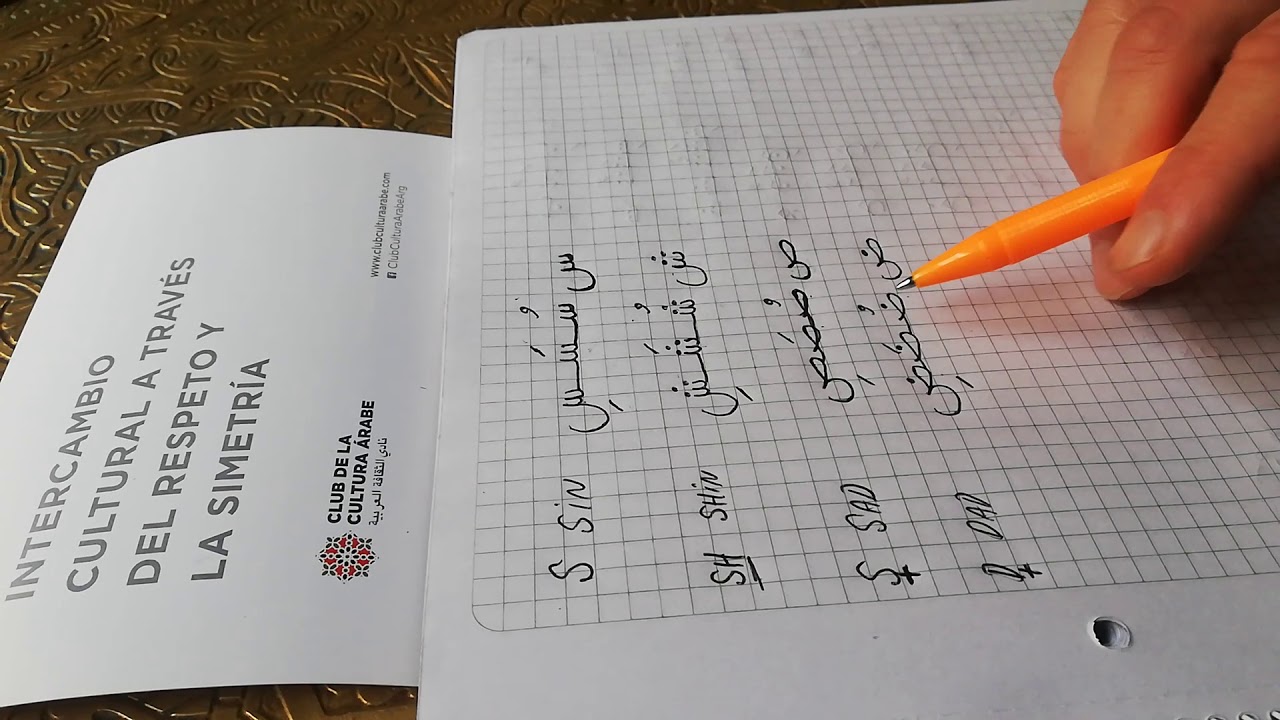 INTERCAMBIO
CULTURAL A TRAVÉS
DEL RESPETO Y
LA SIMETRÍA
CLUB DE LA
CULTURA ÁRABE
نادي الثقافة العربية
www.clubculturaarabe.com
ClubCulturaArabeArg
S SiN سُسَسِ س
SH SHiN شُشَشِ ش
S SAD صُصَصِ ص
D DAD ضُضَضِ ض